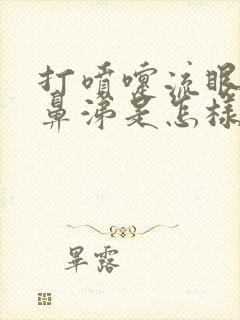 打喷嚏流眼
鼻涕是怎样
畢露